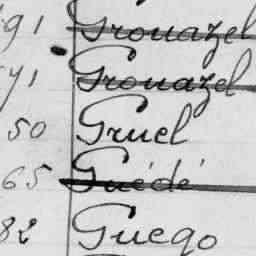 91 Grouazel
71 Grouazel
50 Gruel
65 Guédé
82 Guego